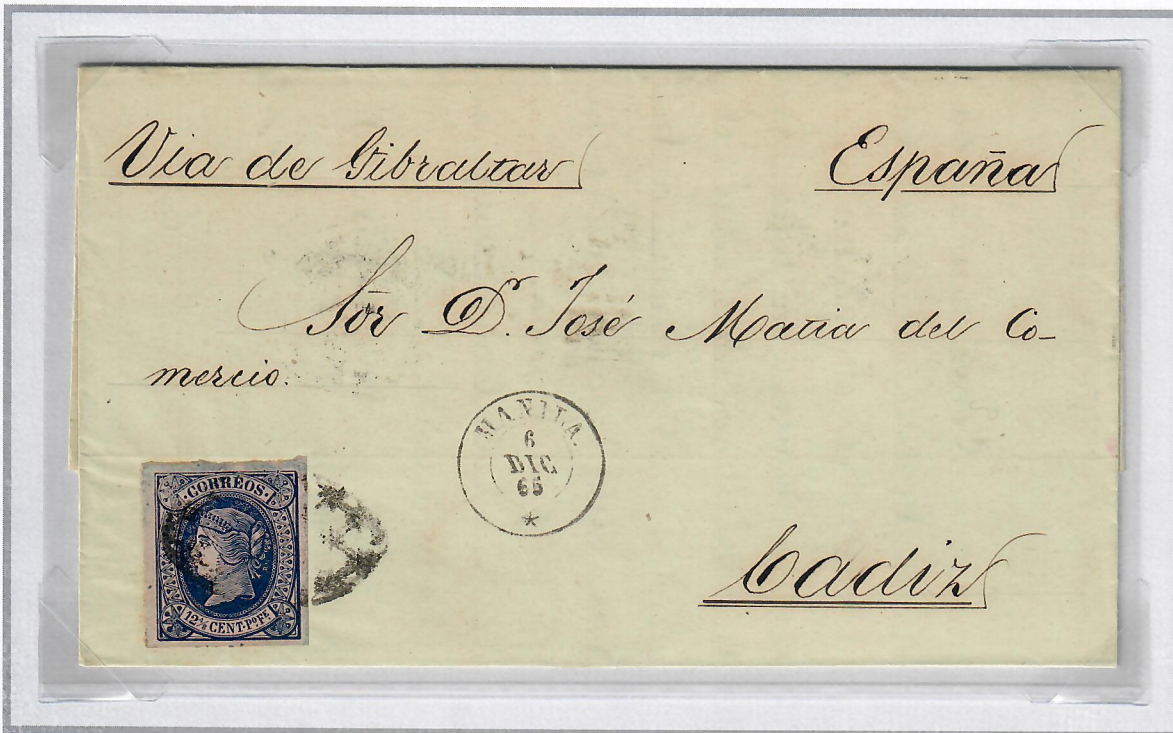 Via de Gibraltar
España
Sōr D. José Matia del Co-
mercio.
MANILA.
6
DIC
65
CORREOS
12 4/8 CENT. Pº Fe
Cadiz